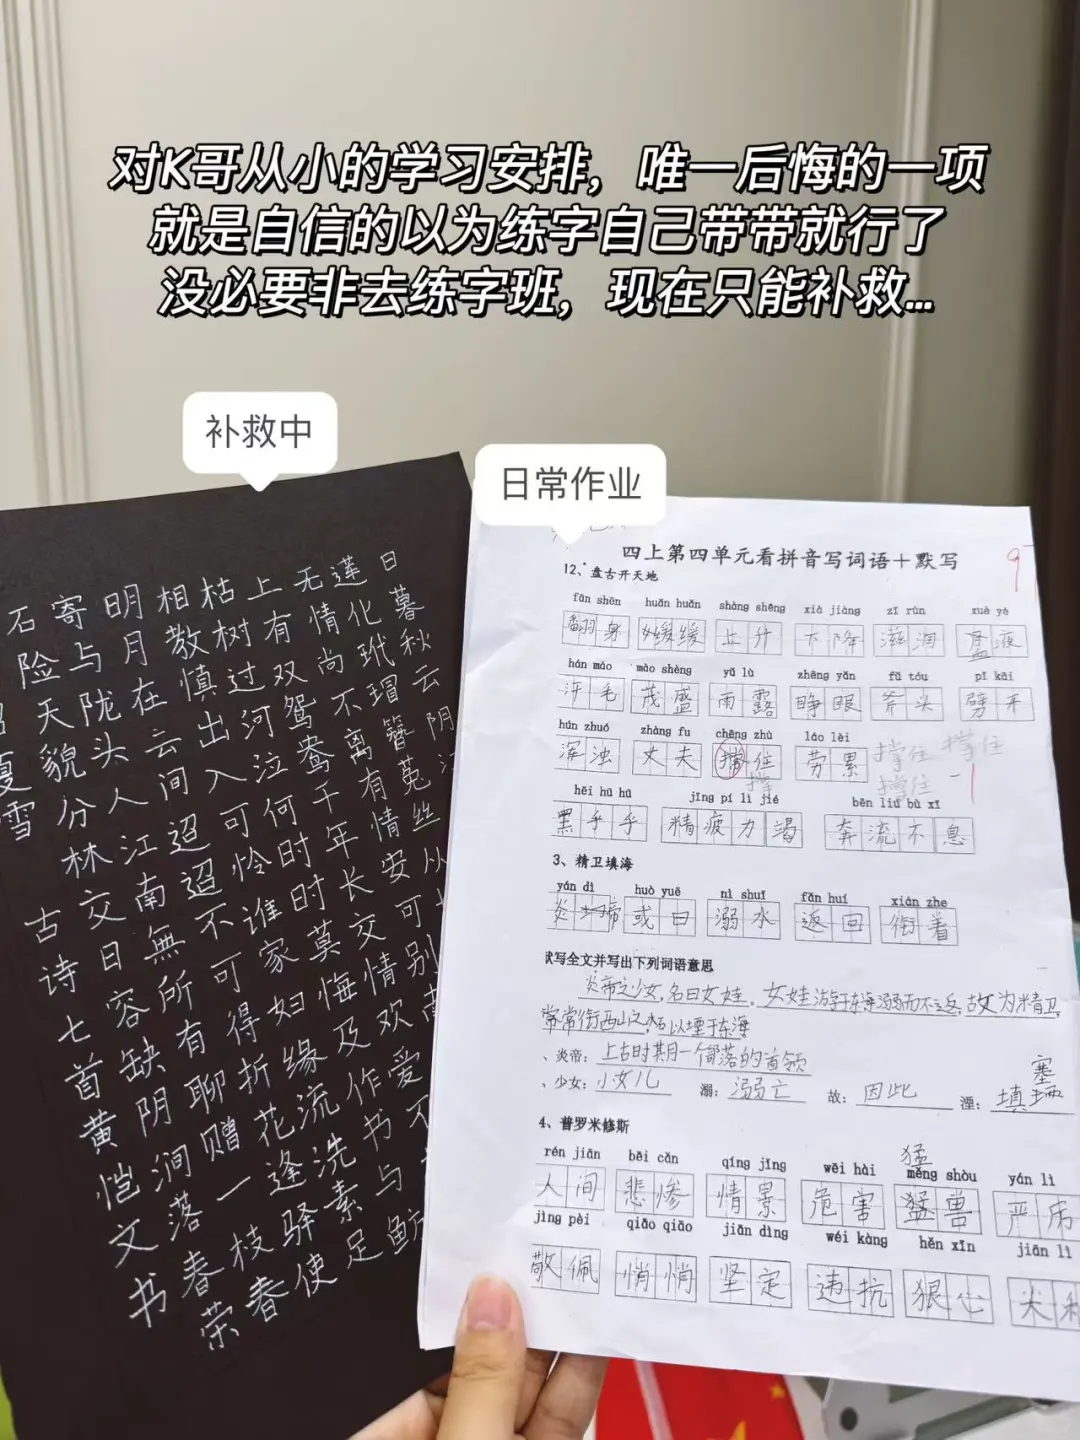 对K哥从小的学习安排，唯一后悔的一项
就是自信的以为练字自己带带就行了
没必要非去练字班，现在只能补救...
补救中
日常作业
石寄明相枯上无莲日
险与月教树有情化暮
天陇在慎过双尚玳秋
夏貌头云出河鸳不瑁云
雪分人间入泣鸯离簪阴
林江迢可何千有菟
古交南迢怜时年情丝
诗日無不谁时长安从
七容所可家莫交可
首缺有得妇悔情别
黄阴聊折缘及欢
恺涧赠花流作爱
文落一逢洗书不
书春枝驿素与
荣春使足鲂
四上第四单元看拼音写词语＋默写
9
12、盘古开天地
fān shēn huǎn huǎn shàng shēng xià jiàng zī rùn xuè yè
翻身 缓缓 上升 下降 滋润 血液
hán máo mào shèng yǔ lù zhēng yǎn fǔ tóu pī kāi
汗毛 茂盛 雨露 睁眼 斧头 劈开
hún zhuó zhàng fu chēng zhù láo lèi
浑浊 丈夫 撑住 劳累 撑住 撑住
撑 撑住 -1
hēi hū hū jīng pí lì jié bēn liú bù xī
黑乎乎 精疲力竭 奔流不息
3、精卫填海
yán dì huò yuē nì shuǐ fǎn huí xián zhe
炎帝 或曰 溺水 返回 衔着
默写全文并写出下列词语意思
炎帝之少女，名曰女娃。女娃游于东海，溺而不返，故为精卫，
常衔西山之木石，以堙于东海
、炎帝：上古时期一个部落的首领
、少女：小女儿 溺：溺亡 故：因此 湮：填塞
4、普罗米修斯
rén jiān bēi cǎn qíng jǐng wēi hài měng shòu yán lì
猛
人间 悲惨 情景 危害 猛兽 严厉
jìng pèi qiāo qiāo jiān dìng wéi kàng hěn xīn jiān lì
敬佩 悄悄 坚定 违抗 狠心 尖利